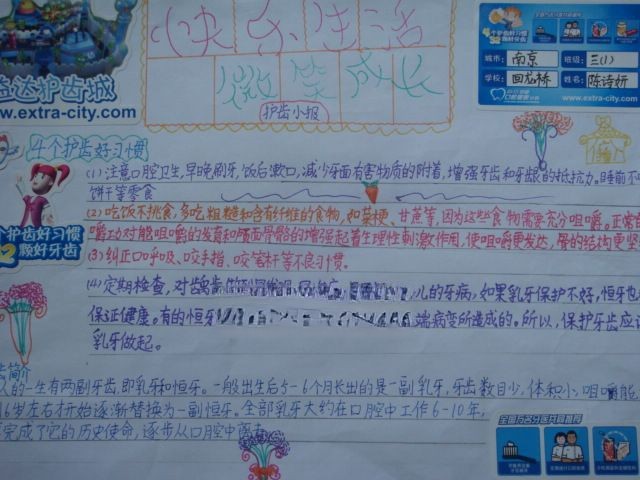 快乐生活
微笑成长
护齿小报
益达护齿城
www.extra-city.com
城市： 南京 班级： 三(1)
学校： 回龙桥 姓名： 陈诗妍
www.extra-city.com
4个护齿好习惯
(1)注意口腔卫生,早晚刷牙,饭后漱口,减少牙面有害物质的附着,增强牙齿和牙龈的抵抗力。睡前不
饼干等零食
(2)吃饭不挑食,多吃粗糙和含有纤维的食物,如菜梗、甘蔗等,因为这些食物需要充分咀嚼。正常的
嚼功对能咀嚼的发育和颌面骨骼的增强起着生理性刺激作用,使咀嚼更发达,骨的结构更坚
(3)纠正口呼吸、咬手指、咬笔杆等不良习惯。
个护齿好习惯
2颗好牙齿
(4)定期检查,对龋齿
儿的牙病,如果乳牙保护不好,恒牙也
保证健康。有的恒牙
端病变所造成的。所以,保护牙齿应
乳牙做起。
齿简介
人的一生有两副牙齿,即乳牙和恒牙。一般出生后5-6个月长出的是一副乳牙,牙齿数目少,体积小,咀嚼能
6岁左右才开始逐渐替换为一副恒牙。全部乳牙大约在口腔中工作6-10年,
完成了它的历史使命,逐步从口腔中